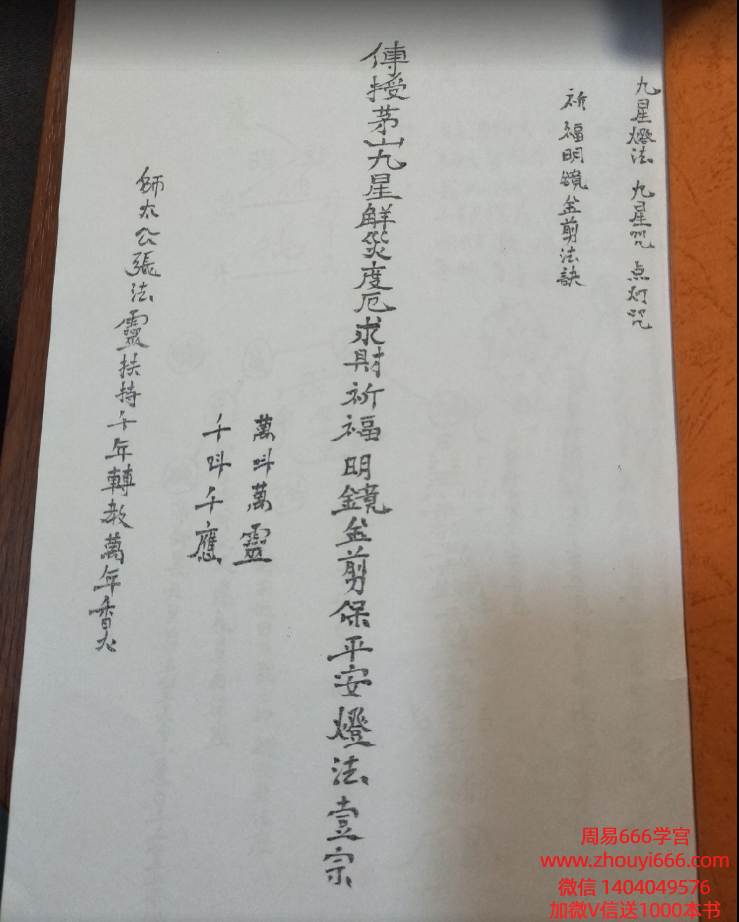 九星燈法 九星咒 点灯咒
祈福明鏡金剪法訣
傳授茅山九星解災度厄求財祈福明鏡金剪保平安燈法壹宗
萬叫萬靈
千叫千應
師太公張法靈扶持千年轉教萬年香火
周易666学宫
www.zhouyi666.com
微信 1404049576
加微V信送1000本书